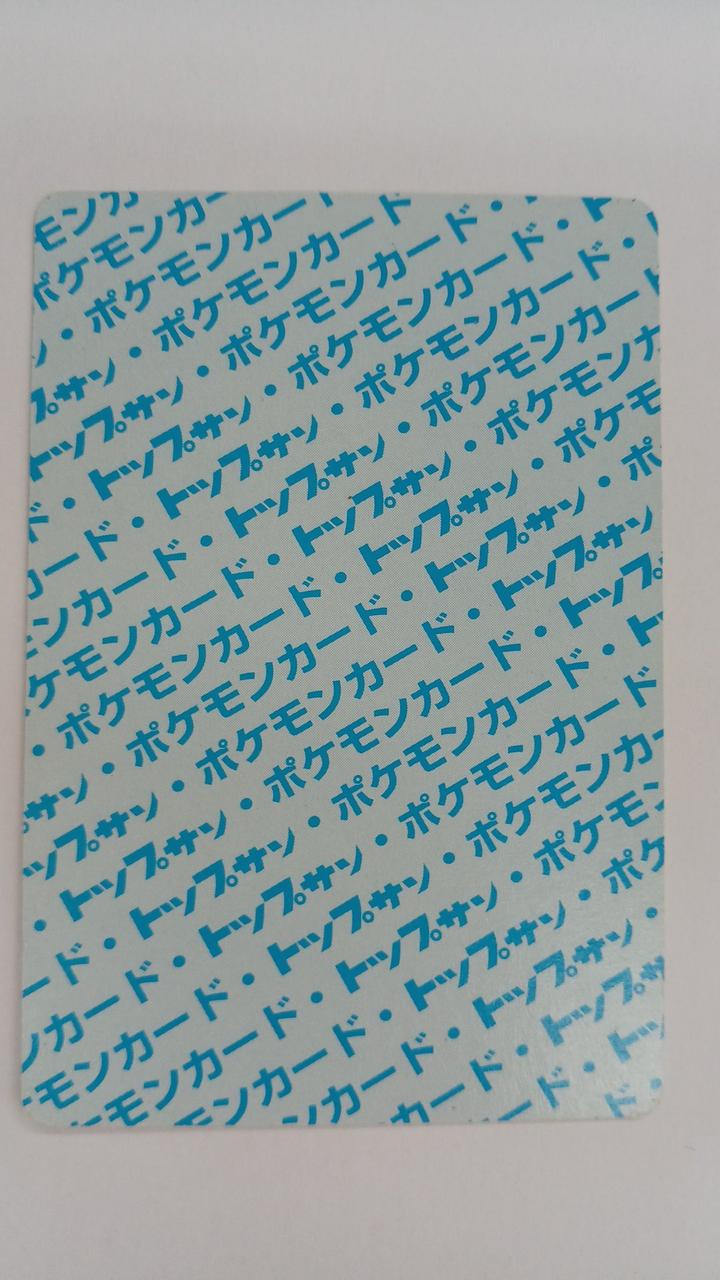 モンカ
ポケモンカー
ン・ポケモンカー
プサン・ポケモンカード
トップサン・ポケモンカード・
ド・トップサン・ポケモンカード・ト
ード・トップサン・ポケモンカード・
ンカード・トップサン・ポケモンカー
ケモンカード・トップサン・ポケモンカ
・ポケモンカード・トップサン・ポケモ
サン・ポケモンカード・トップサン・ポ
ップサン・ポケモンカード・トップサン
・トップサン・ポケモンカード・トップ
ード・トップサン・ポケモンカード・ト
ンカード・トップサン・ポケモンカード
モンカード・トップサン・ポケモンカー
モンカード・トップサン・ポケモン
ンカード・トップサン・ポケ
カード・トップサン・
ード・トップサ
ド・ト
ド・